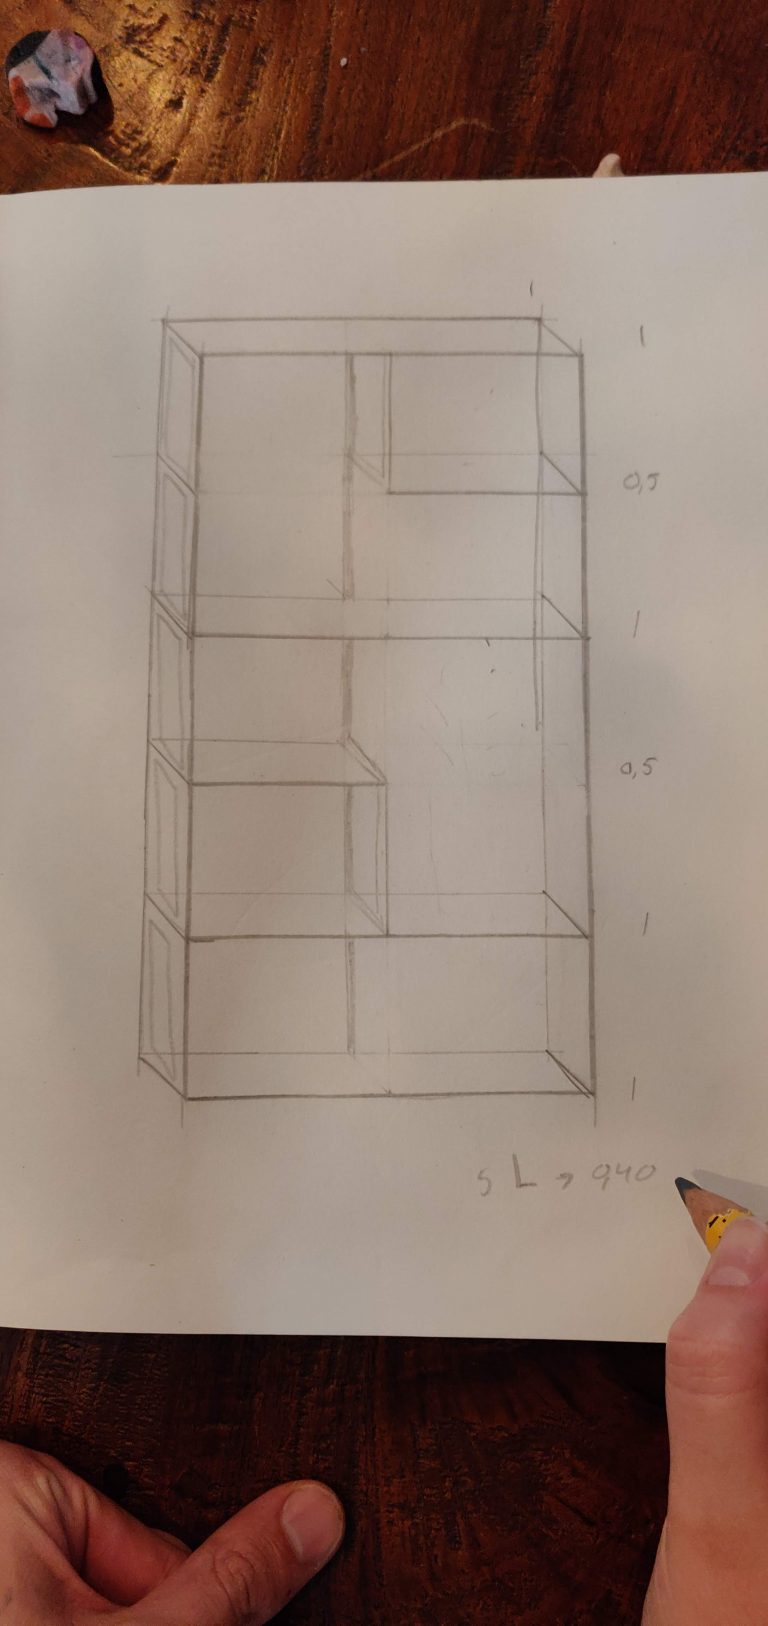 1
1
0,5
1
0,5
1
1
5 L → 0,40